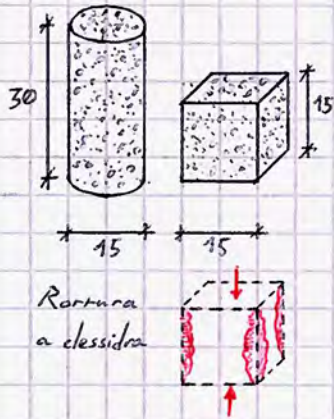 30
15
15
15
Rottura
a clessidra